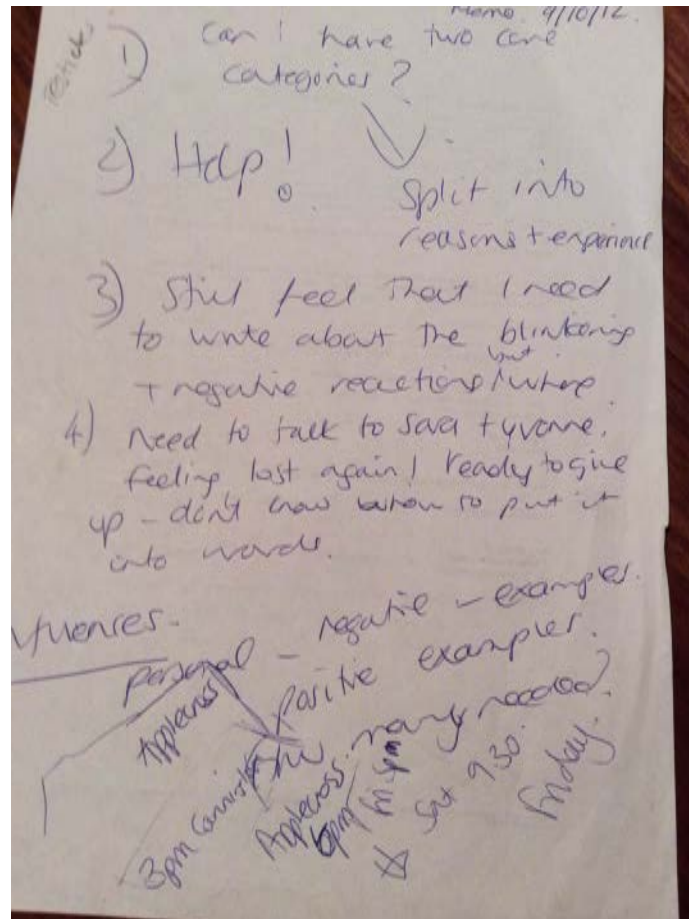 Memo 9/10/12
1) Can I have two core
categories?
2) Help!
Split into
reasons + experience
3) Still feel that I need
to write about the blinkering
+ negative reactions / where
4) Need to talk to Sara + Yvonne.
feeling lost again! ready to give
up - don't know to put it
into words.
personal - negative - examples.
positive examples.
Applecross
3pm
Applecross.
needed?
6pm
Sat 9.30.
Friday.